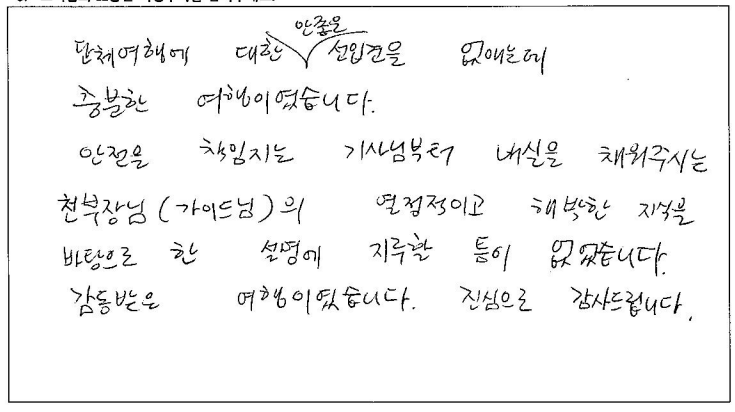 단체여행에 대한 안좋은 선입견을 없애는데
충분한 여행이였습니다.
안전을 책임지는 기사님부터 내실을 채워주시는
천부장님 (가이드님)의 열정적이고 해박한 지식을
바탕으로 한 설명에 지루할 틈이 없었습니다.
감동받은 여행이였습니다. 진심으로 감사드립니다.